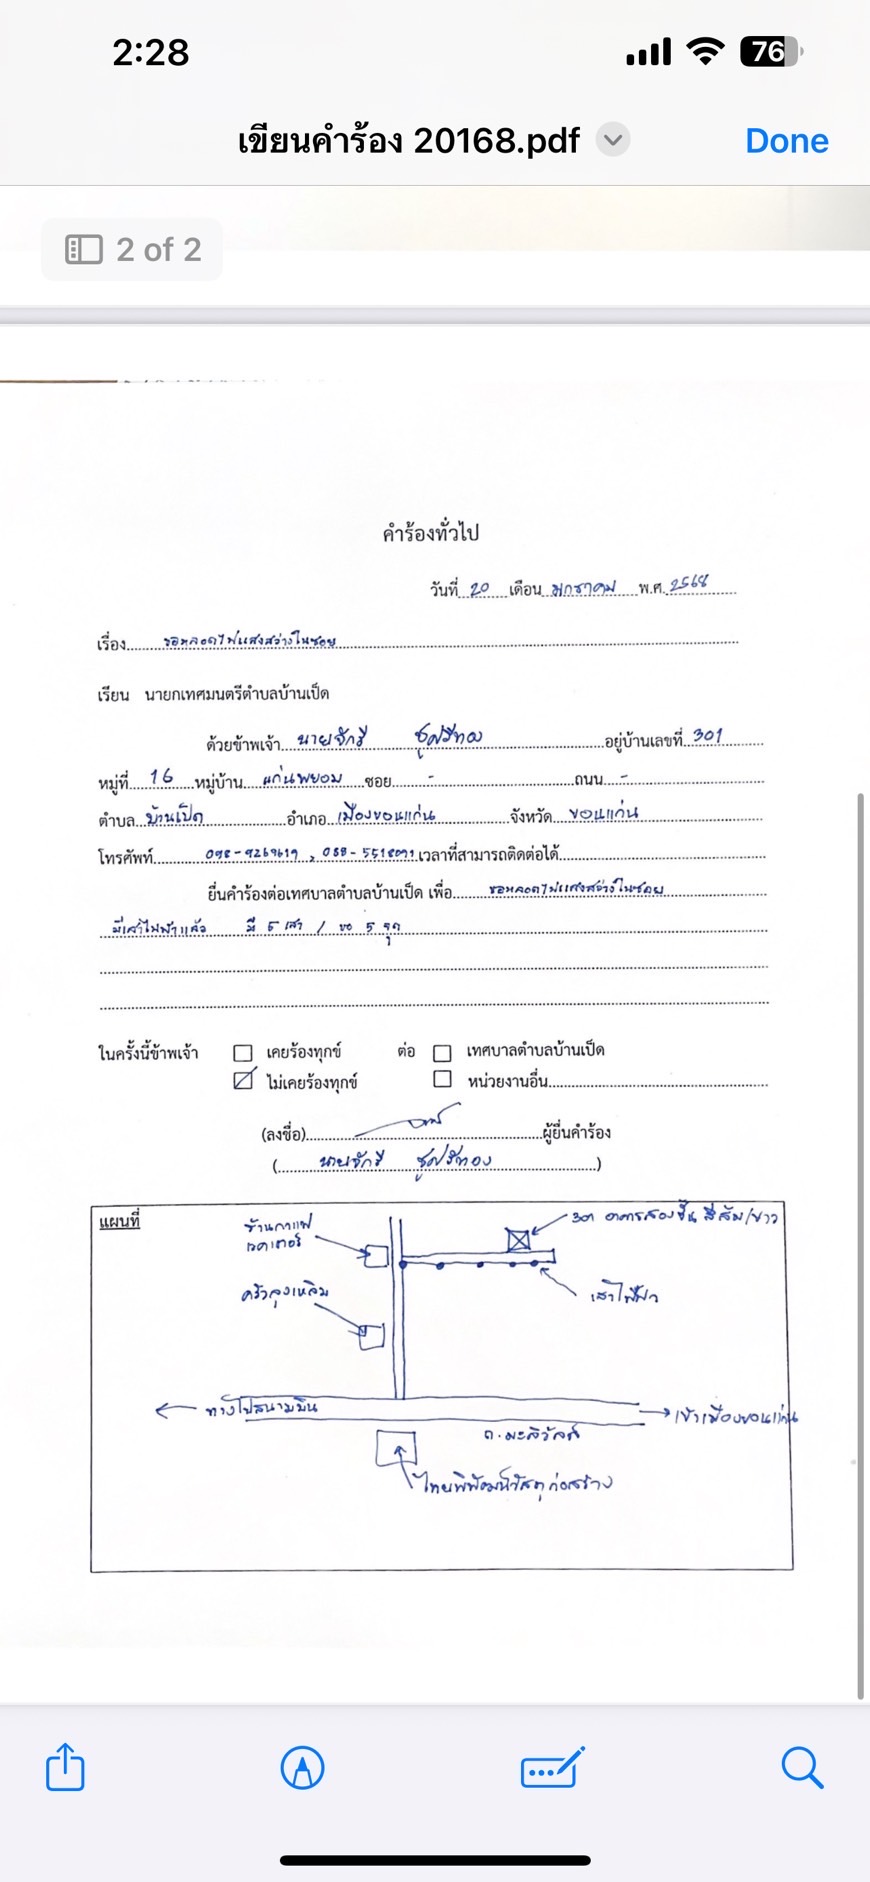 2:28
76
เขียนคำร้อง 20168.pdf
Done
2 of 2
คำร้องทั่วไป
วันที่ 20 เดือน มกราคม พ.ศ. 2568
เรื่อง ขอหลอดไฟแสงสว่างในซอย
เรียน นายกเทศมนตรีตำบลบ้านเป็ด
ด้วยข้าพเจ้า นายจักรี อยู่บ้านเลขที่ 301
หมู่ที่ 16 หมู่บ้าน แก่นพยอม ซอย - ถนน -
ตำบล บ้านเป็ด อำเภอ เมืองขอนแก่น จังหวัด ขอนแก่น
โทรศัพท์ เวลาที่สามารถติดต่อได้
ยื่นคำร้องต่อเทศบาลตำบลบ้านเป็ด เพื่อ ขอหลอดไฟแสงสว่างในซอย
มีเสาไฟฟ้าแล้ว มี 5 เสา / ขอ 5 จุด
ในครั้งนี้ข้าพเจ้า เคยร้องทุกข์ ต่อ เทศบาลตำบลบ้านเป็ด
ไม่เคยร้องทุกข์ หน่วยงานอื่น
(ลงชื่อ) ผู้ยื่นคำร้อง
( นายจักรี )
แผนที่
ร้านกาแฟ
301 อาคารสองชั้น สีส้ม/ขาว
ครัวลุงเหลิม
เสาไฟฟ้า
ทางไปสนามบิน
เข้าเมืองขอนแก่น
ถ.มะลิวัลย์
ไทยพิพัฒน์วัสดุก่อสร้าง